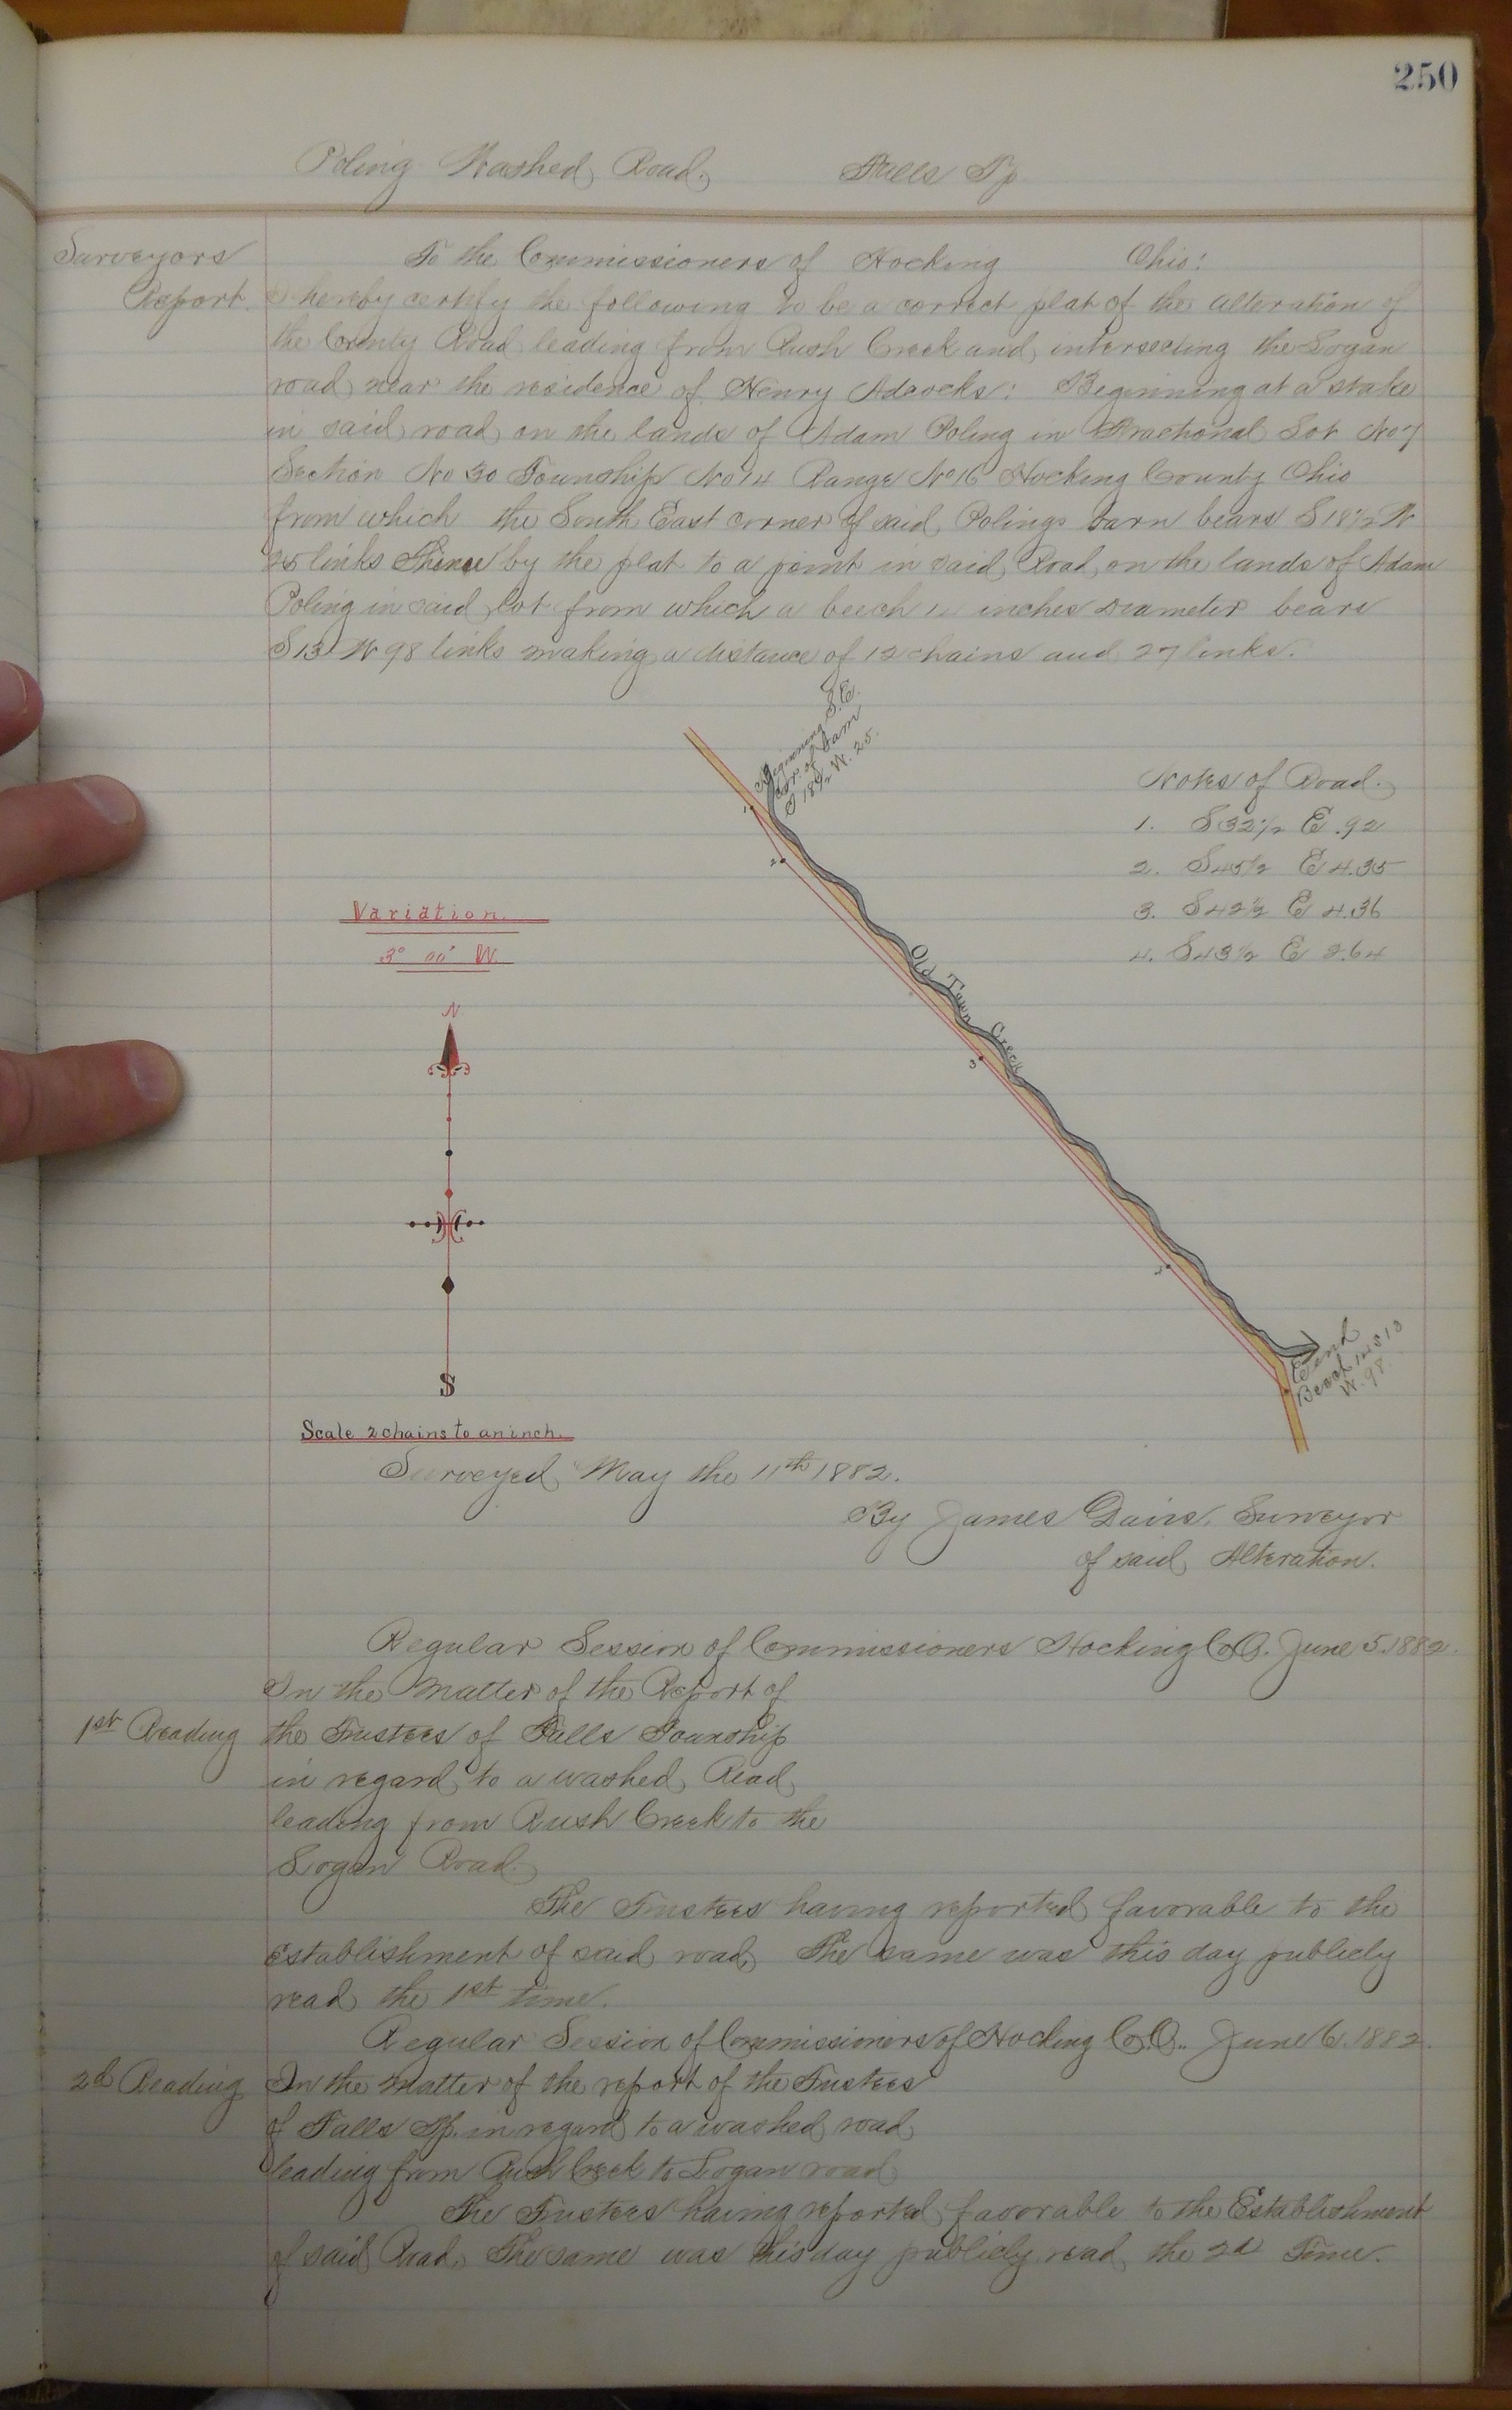 250
Poling Washed Road, Falls Tp
Surveyors
Report.
To the Commissioners of Hocking Ohio:
I hereby certify the following to be a correct plat of the alteration of
the County Road leading from Rush Creek and intersecting the Logan
road near the residence of Henry Adcocks: Beginning at a stake
in said road on the lands of Adam Poling in Fractional Lot No 7
Section No 30 Township No 14 Range No 16 Hocking County Ohio
from which the South East corner of said Polings barn bears S 18½ W
25 links Thence by the plat to a point in said Road on the lands of Adam
Poling in said lot from which a beech inches Diameter bears
S 13 W 98 links making a distance of 12 chains and 27 links.
Beginning S.E.
Cor. of barn
S 18½ W. 25.
Notes of Road.
1. S 32½ E .92
2. S 45½ E 4.35
3. S 42½ E 4.36
4. S 43½ E 2.64
1
2
Old Town Creek
3
Variation.
3° 00' W.
N
S
End
Beech 14 S 13
W. 98.
Scale 2 chains to an inch.
Surveyed May the 11th 1882.
By James Davis. Surveyor
of said Alteration.
Regular Session of Commissioners Hocking Co O. June 5. 1882.
In the Matter of the Report of
1st Reading the Trustees of Falls Township
in regard to a washed Road
leading from Rush Creek to the
Logan Road.
The Trustees having reported favorable to the
establishment of said road, The same was this day publicly
read the 1st time.
Regular Session of Commissioners of Hocking Co. O.. June 6. 1882.
2d Reading In the matter of the report of the Trustees
of Falls Tp. in regard to a washed road
leading from Rush Creek to Logan road
The Trustees having reported favorable to the Establishment
of said Road. The same was this day publicly read the 2d Time.